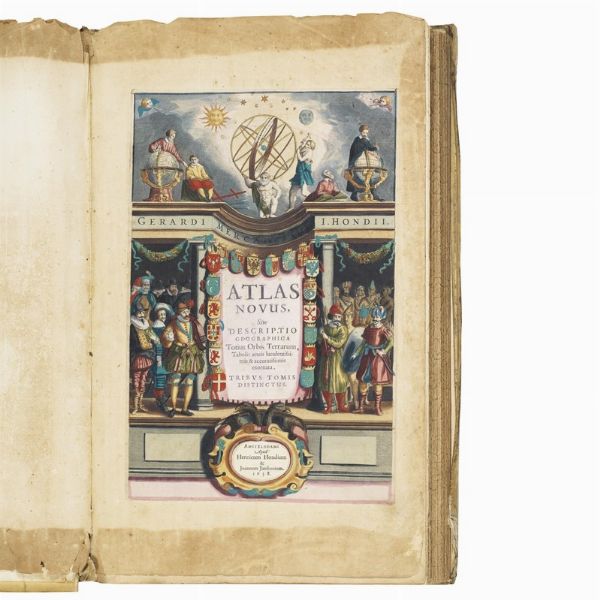 GERARDI MERCATORIS I. HONDII.
ATLAS
NOVUS,
Sive
DESCRIPTIO
GEOGRAPHICA
Totius Orbis Terrarum,
Tabulis æneis luculentissi-
mis & accuratissimis
exornata,
TRIBVS TOMIS
DISTINCTUS.
AMSTELODAMI
Apud
Henricum Hondium
&
Joannem Janssonium.
1638